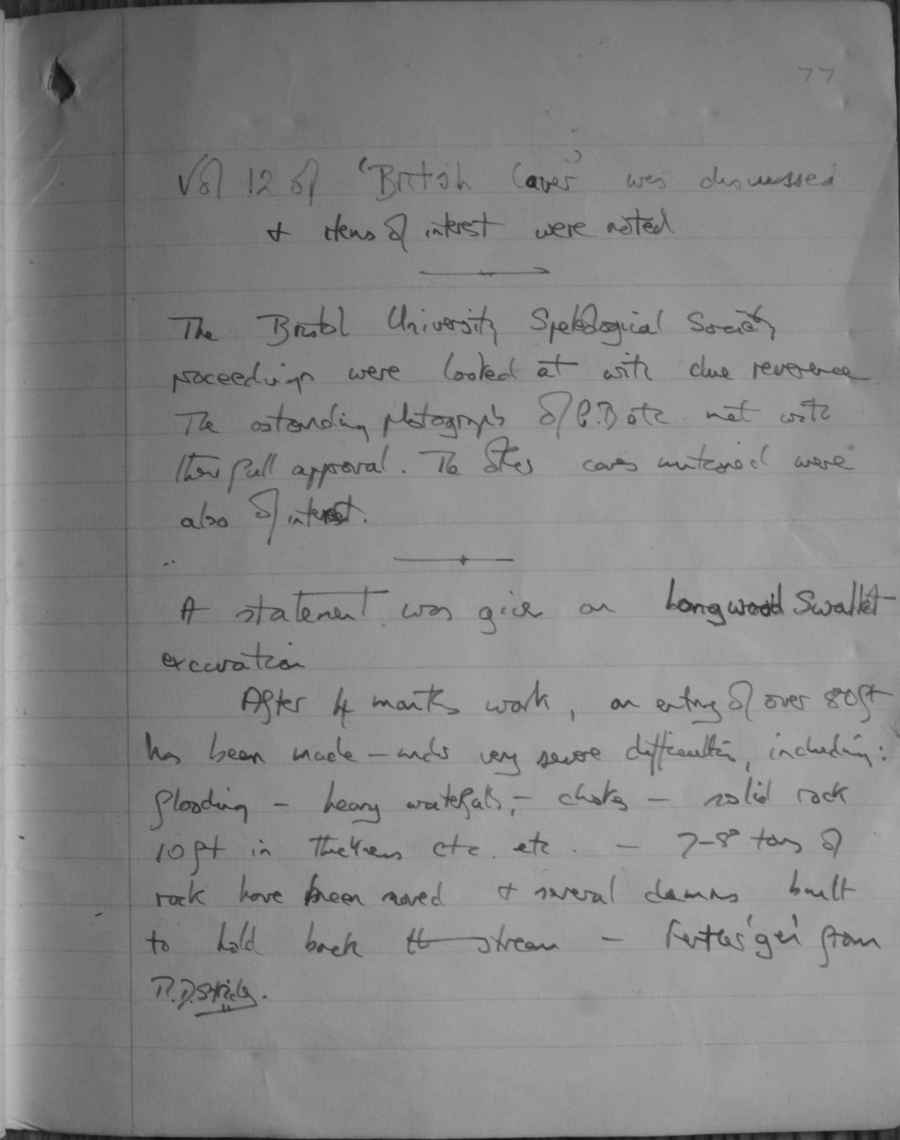 77
Vol 12 of 'British Caves' was discussed
+ items of interest were noted
The Bristol University Spelelogical Society
proceedings were looked at with due reverence
The outstanding photographs of etc. met with
their full approval. The caves mentioned were
also of interest.
A statement was give on Longwood Swallet
excavation
After 4 months work, an entry of over 80ft
has been made - under very severe difficulties, including:
flooding - heavy waterfalls, - chokes - solid rock
10ft in thickness etc. etc. - 7-8 tons of
rock have been moved + several damns built
to hold back the stream - further 'gen' from